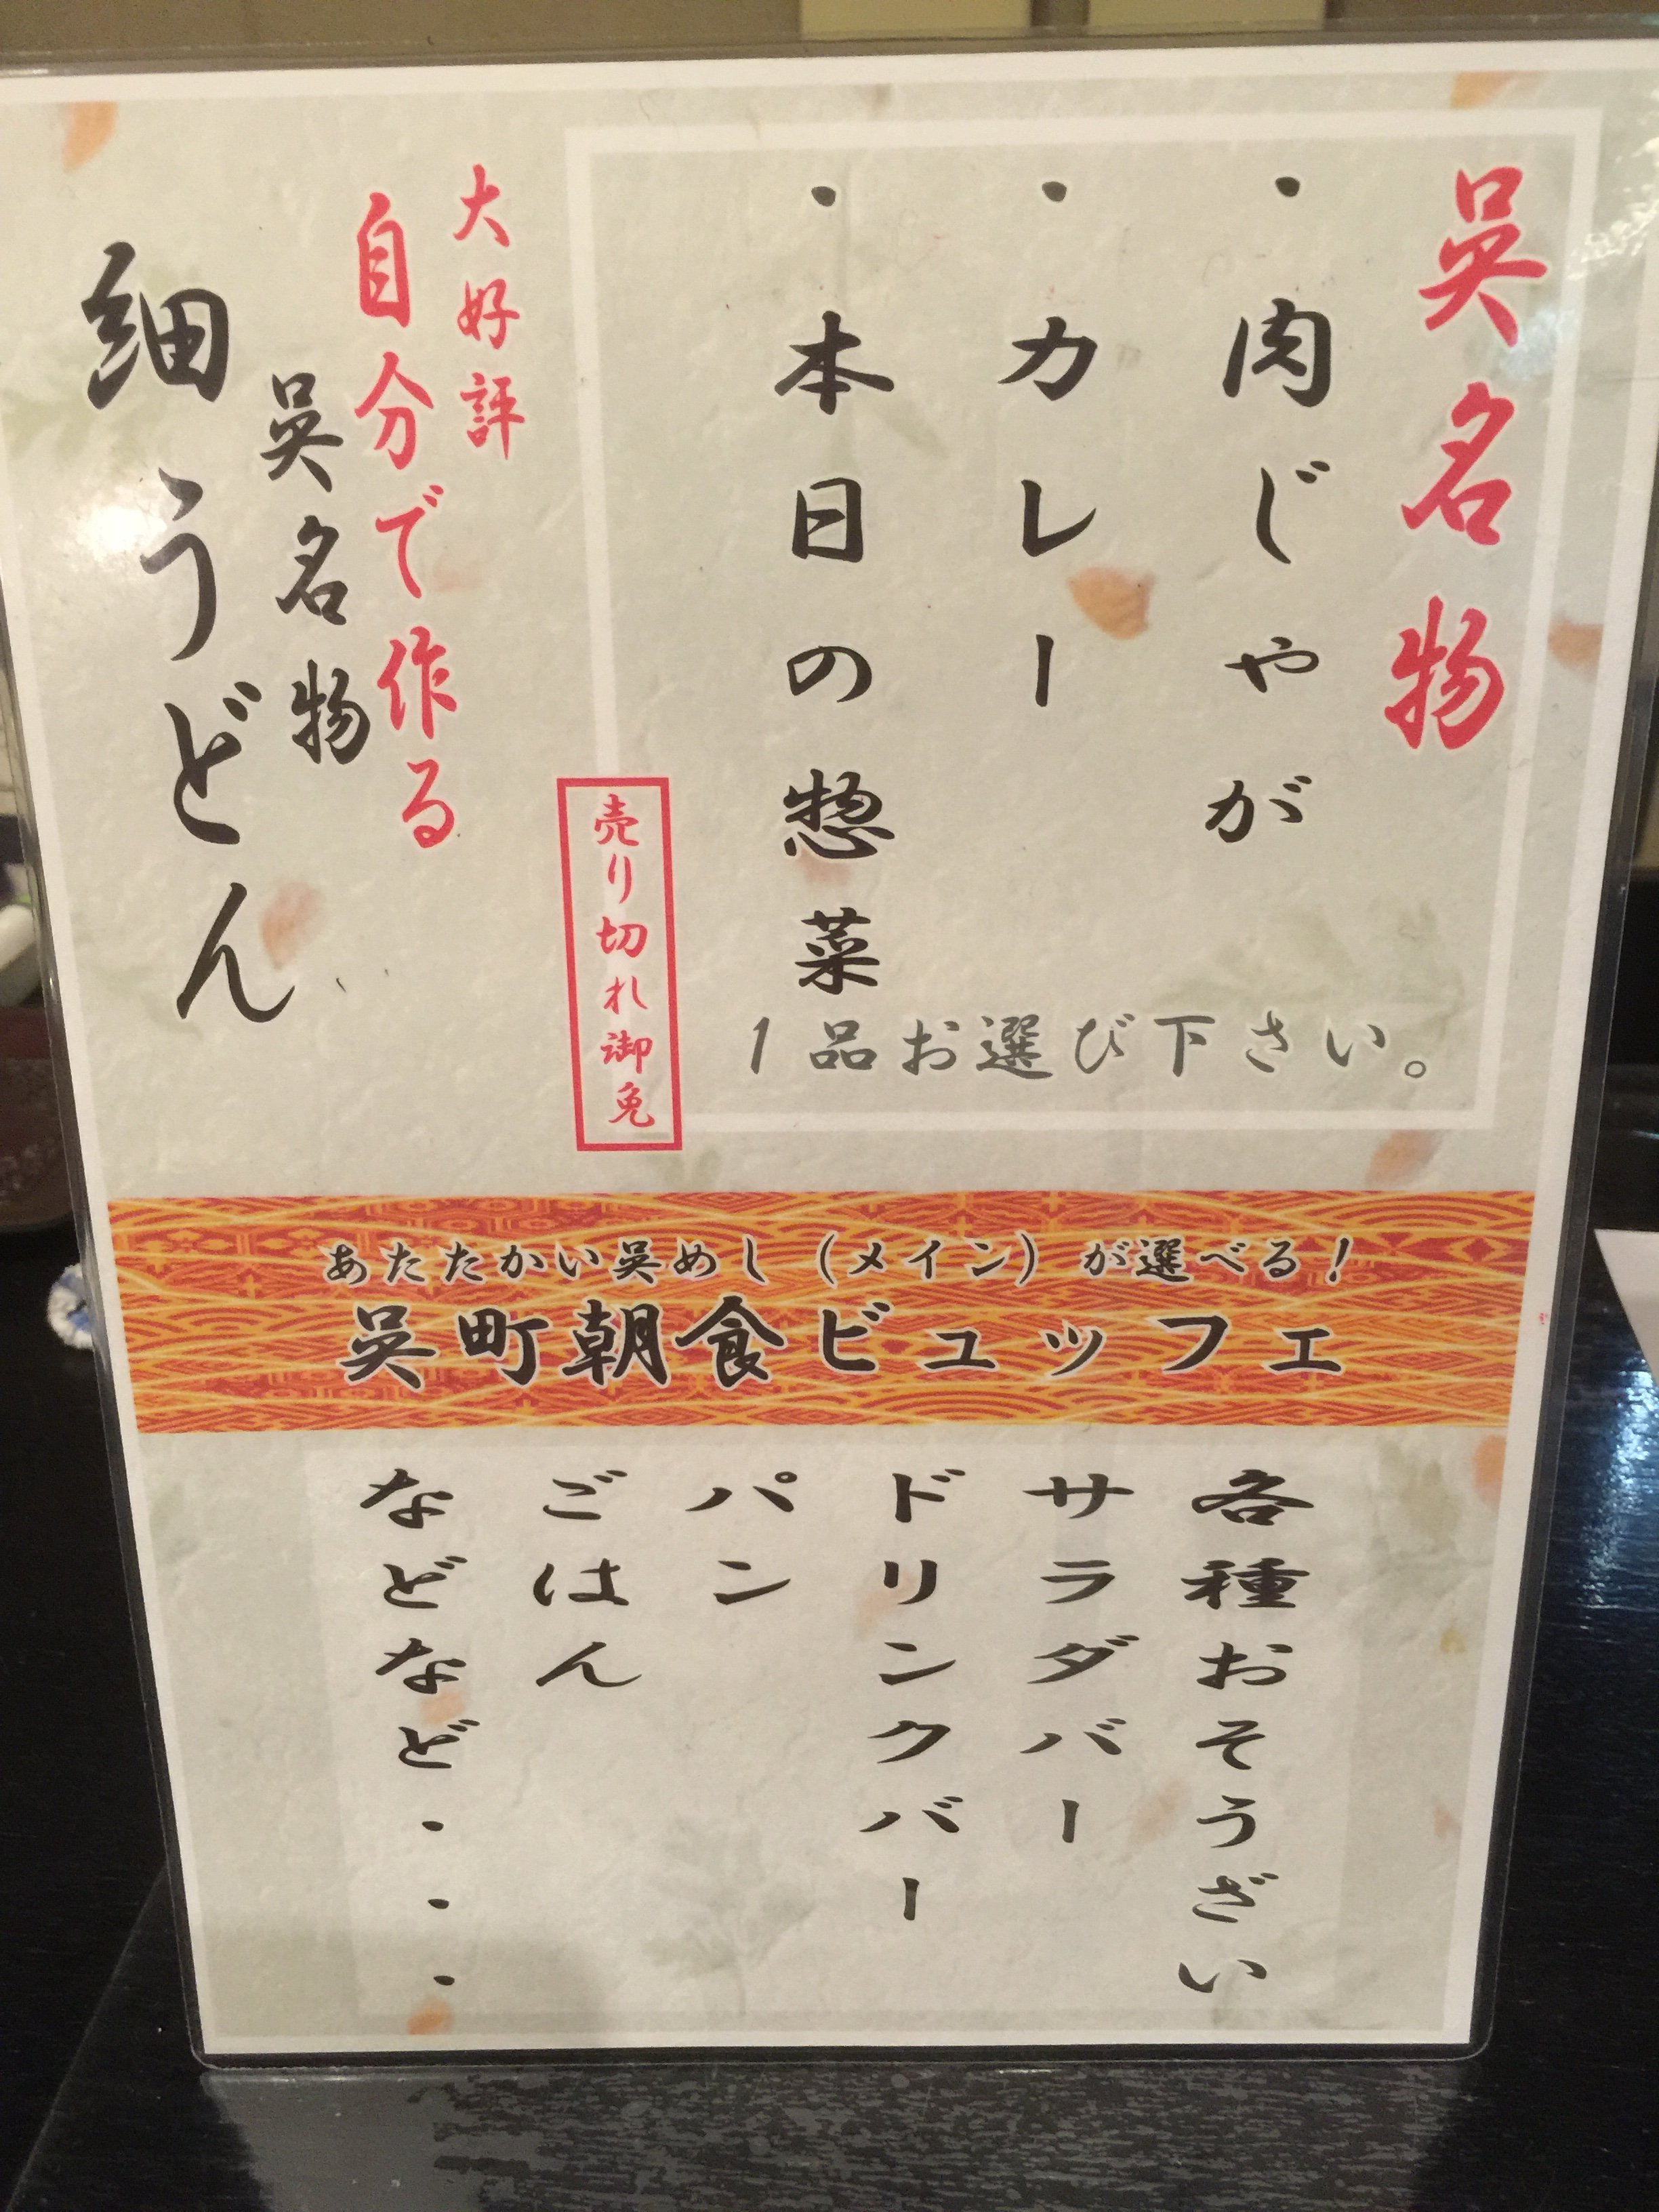 呉名物
・肉じゃが
・カレー
・本日の惣菜
1品お選び下さい。
売り切れ御免
大好評
自分で作る
呉名物
細うどん
あたたかい呉めし(メイン)が選べる!
呉町朝食ビュッフェ
各種おそうざい
サラダバー
ドリンクバー
パン
ごはん
などなど・・・